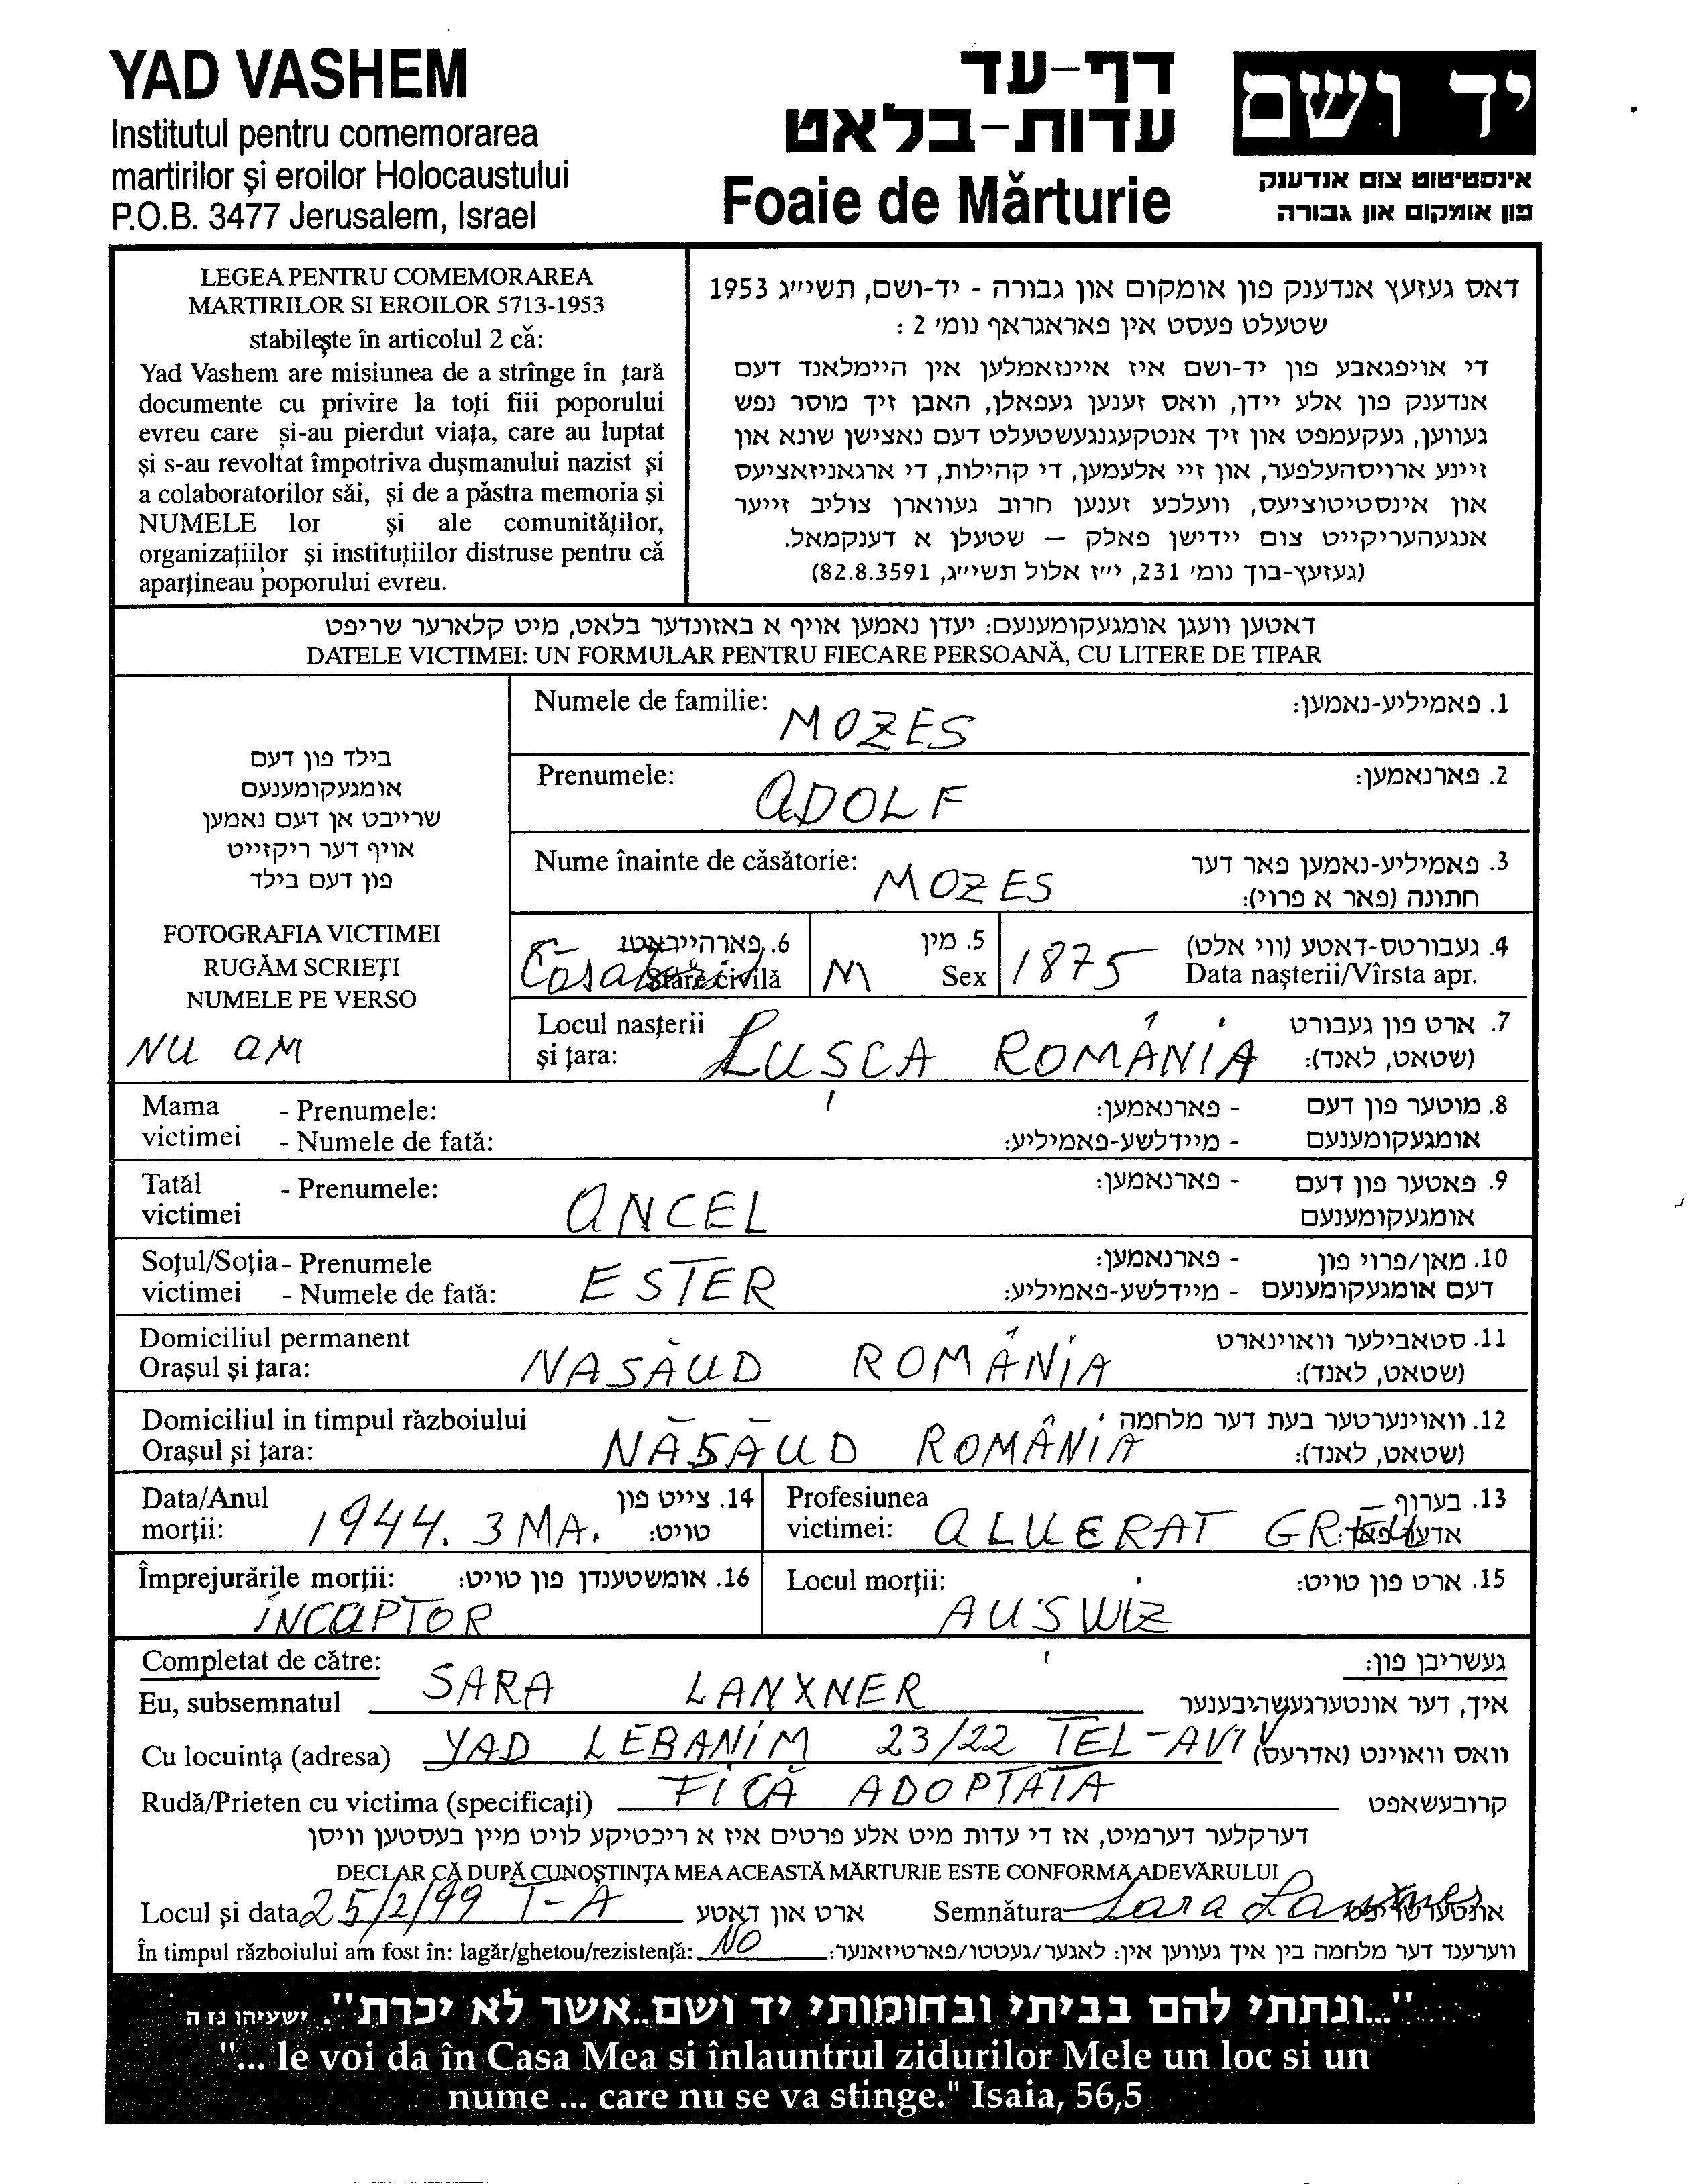 YAD VASHEM
Institutul pentru comemorarea
martirilor și eroilor Holocaustului
P.O.B. 3477 Jerusalem, Israel
דף-עד
עדות-בלאט
Foaie de Mărturie
יד ושם
אינסטיטוט צום אנדענק
פון אומקום און גבורה
LEGEA PENTRU COMEMORAREA
MARTIRILOR SI EROILOR 5713-1953
stabilește în articolul 2 că:
Yad Vashem are misiunea de a strînge în țară
documente cu privire la toți fiii poporului
evreu care și-au pierdut viața, care au luptat
și s-au revoltat împotriva dușmanului nazist și
a colaboratorilor săi, și de a păstra memoria și
NUMELE lor și ale comunităților,
organizațiilor și instituțiilor distruse pentru că
aparțineau poporului evreu.
דאס געזעץ אנדענק פון אומקום און גבורה - יד-ושם, תשי״ג 1953
שטעלט פעסט אין פאראגראף נומ׳ 2 :
די אויפגאבע פון יד-ושם איז איינזאמלען אין היימלאנד דעם
אנדענק פון אלע יידן, וואס זענען געפאלן, האבן זיך מוסר נפש
געווען, געקעמפט און זיך אנטקעגנגעשטעלט דעם נאצישן שונא און
זיינע ארויסהעלפער, און זיי אלעמען, די קהילות, די ארגאניזאציעס
און אינסטיטוציעס, וועלכע זענען חרוב געווארן צוליב זייער
אנגעהעריקייט צום יידישן פאלק — שטעלן א דענקמאל.
(געזעץ-בוך נומ׳ 231, י״ז אלול תשי״ג, 82.8.3591)
דאטען וועגן אומגעקומענעם: יעדן נאמען אויף א באזונדער בלאט, מיט קלארער שריפט
DATELE VICTIMEI: UN FORMULAR PENTRU FIECARE PERSOANĂ, CU LITERE DE TIPAR
בילד פון דעם
אומגעקומענעם
שרייבט אן דעם נאמען
אויף דער ריקזייט
פון דעם בילד
FOTOGRAFIA VICTIMEI
RUGĂM SCRIEȚI
NUMELE PE VERSO
NU AM
Numele de familie: MOZES 1. פאמיליע-נאמען:
Prenumele: ADOLF 2. פארנאמען:
Nume înainte de căsătorie: MOZES 3. פאמיליע-נאמען פאר דער
חתונה (פאר א פרוי):
6. פארהייראט
Stare civilă
5. מין M
Sex
4. געבורטס-דאטע (ווי אלט) 1875
Data nașterii/Vîrsta apr.
Locul nasțerii 7. ארט פון געבורט
și țara: LUSCA ROMÂNIA (שטאט, לאנד):
Mama - Prenumele: - פארנאמען: 8. מוטער פון דעם
victimei - Numele de fată: - מיידלשע-פאמיליע: אומגעקומענעם
Tatăl - Prenumele: ANCEL - פארנאמען: 9. פאטער פון דעם
victimei אומגעקומענעם
Soțul/Soția - Prenumele ESTER - פארנאמען: 10. מאן/פרוי פון
victimei - Numele de fată: - מיידלשע-פאמיליע: דעם אומגעקומענעם
Domiciliul permanent 11. סטאבילער וואוינארט
Orașul și țara: NASĂUD ROMÂNIA (שטאט, לאנד):
Domiciliul in timpul războiului 12. וואוינערטער בעת דער מלחמה
Orașul și țara: NĂSĂUD ROMÂNIA (שטאט, לאנד):
Data/Anul 14. צייט פון
morții: 1944. 3 MA. טויט:
Profesiunea 13. בערוף
victimei: ALUERAT
Împrejurările morții: 16. אומשטענדן פון טויט:
INCAPTOR
Locul morții: 15. ארט פון טויט:
AUSWIZ
Completat de către: געשריבן פון:
Eu, subsemnatul SARA LANXNER איך, דער אונטערגעשריבענער
Cu locuința (adresa) YAD LEBANIM 23/22 TEL-AVIV וואס וואוינט (אדרעס)
Rudă/Prieten cu victima (specificați) FICĂ ADOPTATA קרובעשאפט
דערקלער דערמיט, אז די עדות מיט אלע פרטים איז א ריכטיקע לויט מיין בעסטען וויסן
DECLAR CĂ DUPĂ CUNOȘTINȚA MEA ACEASTĂ MĂRTURIE ESTE CONFORMA ADEVĂRULUI
Locul și data 25/2/99 T-A ארט און דאטע Semnătura Sara Lanxner אונטערשריפט
În timpul războiului am fost în: lagăr/ghetou/rezistență: NO ווערענד דער מלחמה בין איך געווען אין: לאגער/געטטו/פארטיזאנער:
"...ונתתי להם בביתי ובחומותי יד ושם..אשר לא יכרת". ישעיהו נו ה
"... le voi da în Casa Mea si înlauntrul zidurilor Mele un loc si un
nume ... care nu se va stinge." Isaia, 56,5